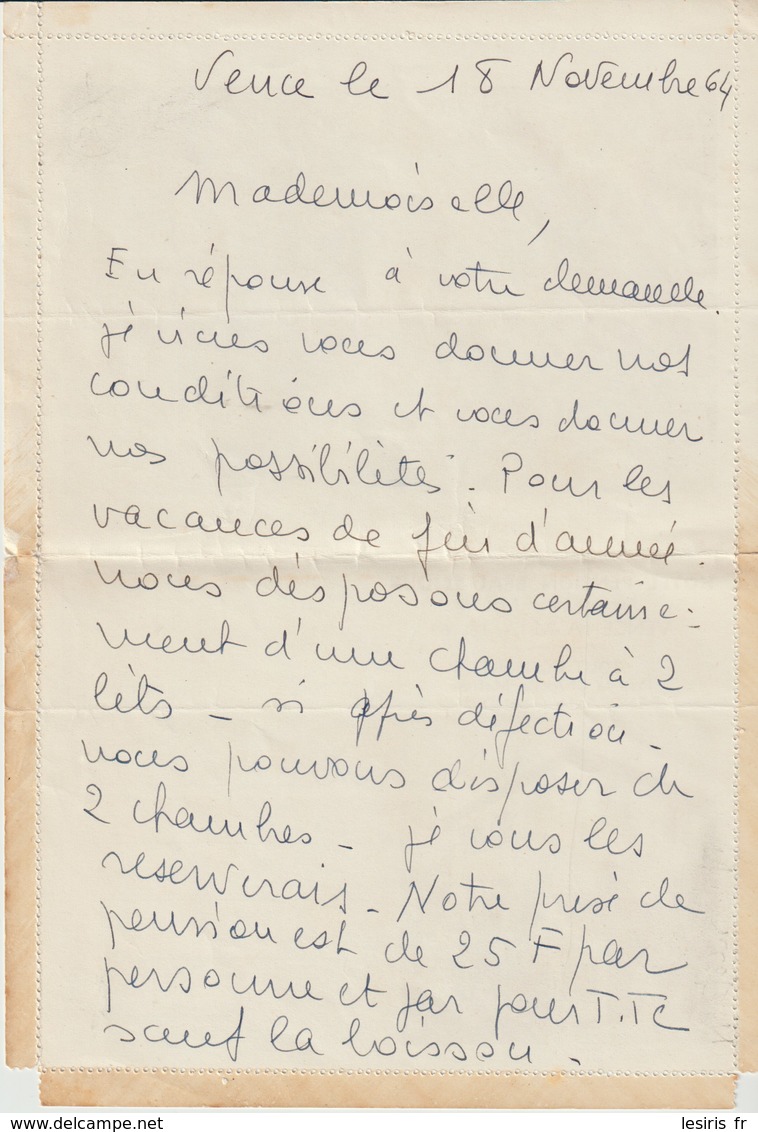 Vence le 18 Novembre 64
Mademoiselle,
En réponse à votre demande.
je viens vous donner nos
conditions et vous donner
nos possibilités. Pour les
vacances de fin d'année.
nous disposons certaine-
ment d'une chambre à 2
lits - si après défection -
nous pouvons disposer de
2 chambres - je vous les
reserverais - Notre prix de
pension est de 25 F par
personne et par jour T.TC
sauf la boisson -
DELCAMPE.NET lesiris fr